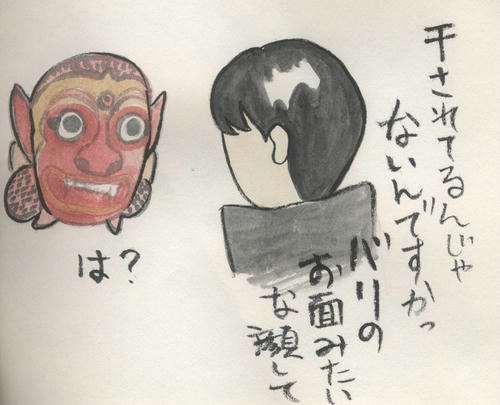 干されてるんじゃ
ないんですかっ
バリの
お面みたい
な顔して
は?